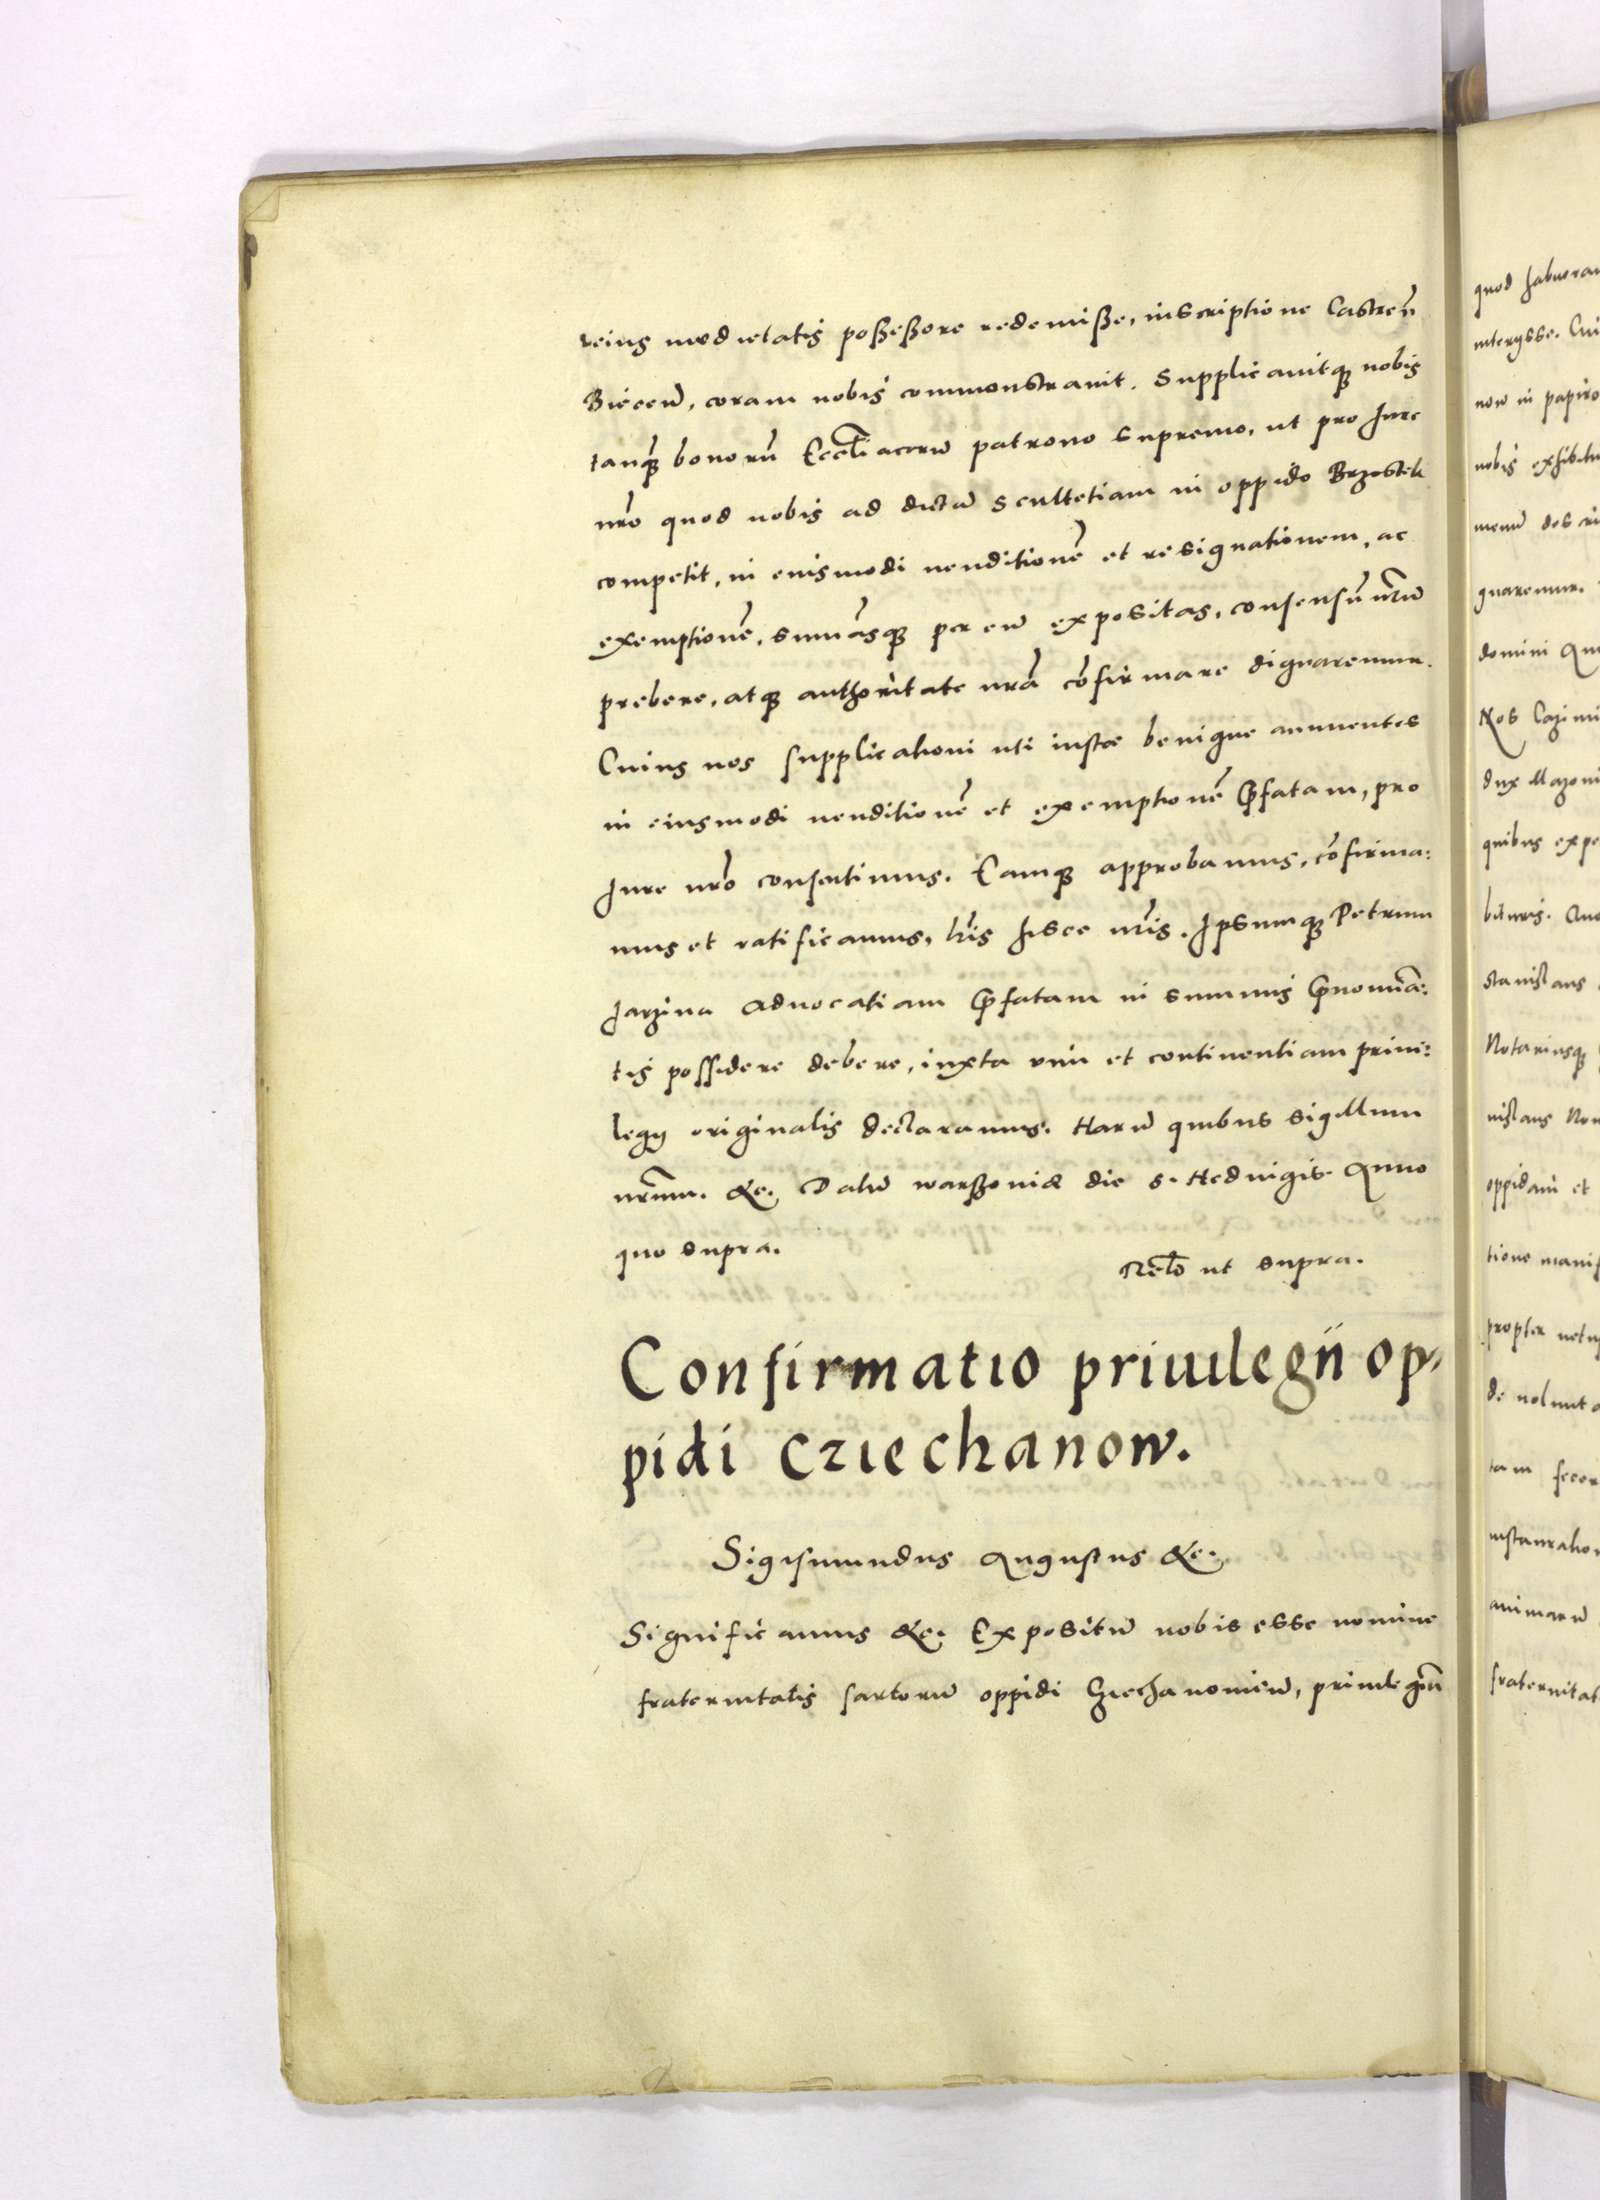 eius medietatis poßeßore redemiße, inscriptione Castreñ
Bieceñ, coram nobis commonstrauit. Supplicauitq₃ nobis
tanq̃ bonorũ Eccl̃iacorũ patrono supremo, ut pro Jure
nr̃o quod nobis ad dictũ scultetiam in oppido Brzostek
competit, in eiusmodi uenditionẽ et resignationem, ac
exemptionẽ, summasq₃ per eũ expositas, consensũ nr̃ũ
prebere, atq₃ authoritate nr̃a cõfirmare dignaremur.
Cuius nos supplicationi uti iustæ benigne annuentes
in eiusmodi uenditionẽ et exemptionẽ p̃fatam, pro
Jure nr̃o consentimus. Eamq₃ approbamus, cõfirma:
mus et ratificamus, lr̃is hisce nr̃is. Ipsumq₃ Petrum
Jarzina Aduocatiam p̃fatam in summis p̃nominã:
tis possidere debere, iuxta uim et continentiam priui:
legij originalis declaramus. Harũ quibus sigillum
nr̃um. &c. Datũ warßouiæ die S. Heduigis Anno
quo supra.
Rel̃o ut supra.
Confirmatio priuilegii op-
pidi Cziechanow.
Sigismundus Augustus &c.
Significamus &c. Expositũ nobis esse nomine
fraternitatis sartorũ oppidi Cziechanouieñ, priuilegiũ
quod
interysse.
now in papiro
nobis exhibitu
menũ descri
gnaremur.
domini
Nos Cazimi
dux Mazoui
quibus expe
bituris.
Stanislaus
Notariusq₃
nislaus
oppidani et
tione manif
propter uetu
de uolunt
tam fecer
instauration
animarũ
fraternitat